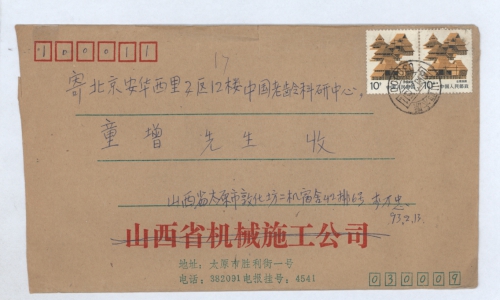 100011
17
寄北京安华西里2区12楼中国老龄科研中心。
10分 中国人民邮政
10分 中国人民邮政
童增 先生 收
山西省太原市敦化坊二机宿舍42排6号
93.2.13.
山西省机械施工公司
地址：太原市胜利街一号
电话：382091 电报挂号：4541
030009